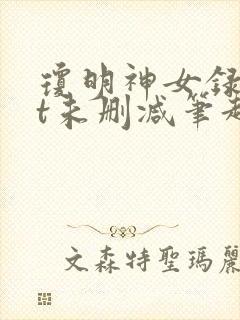 瓊明神女録
t未删减筆趣
文森特聖瑪麗